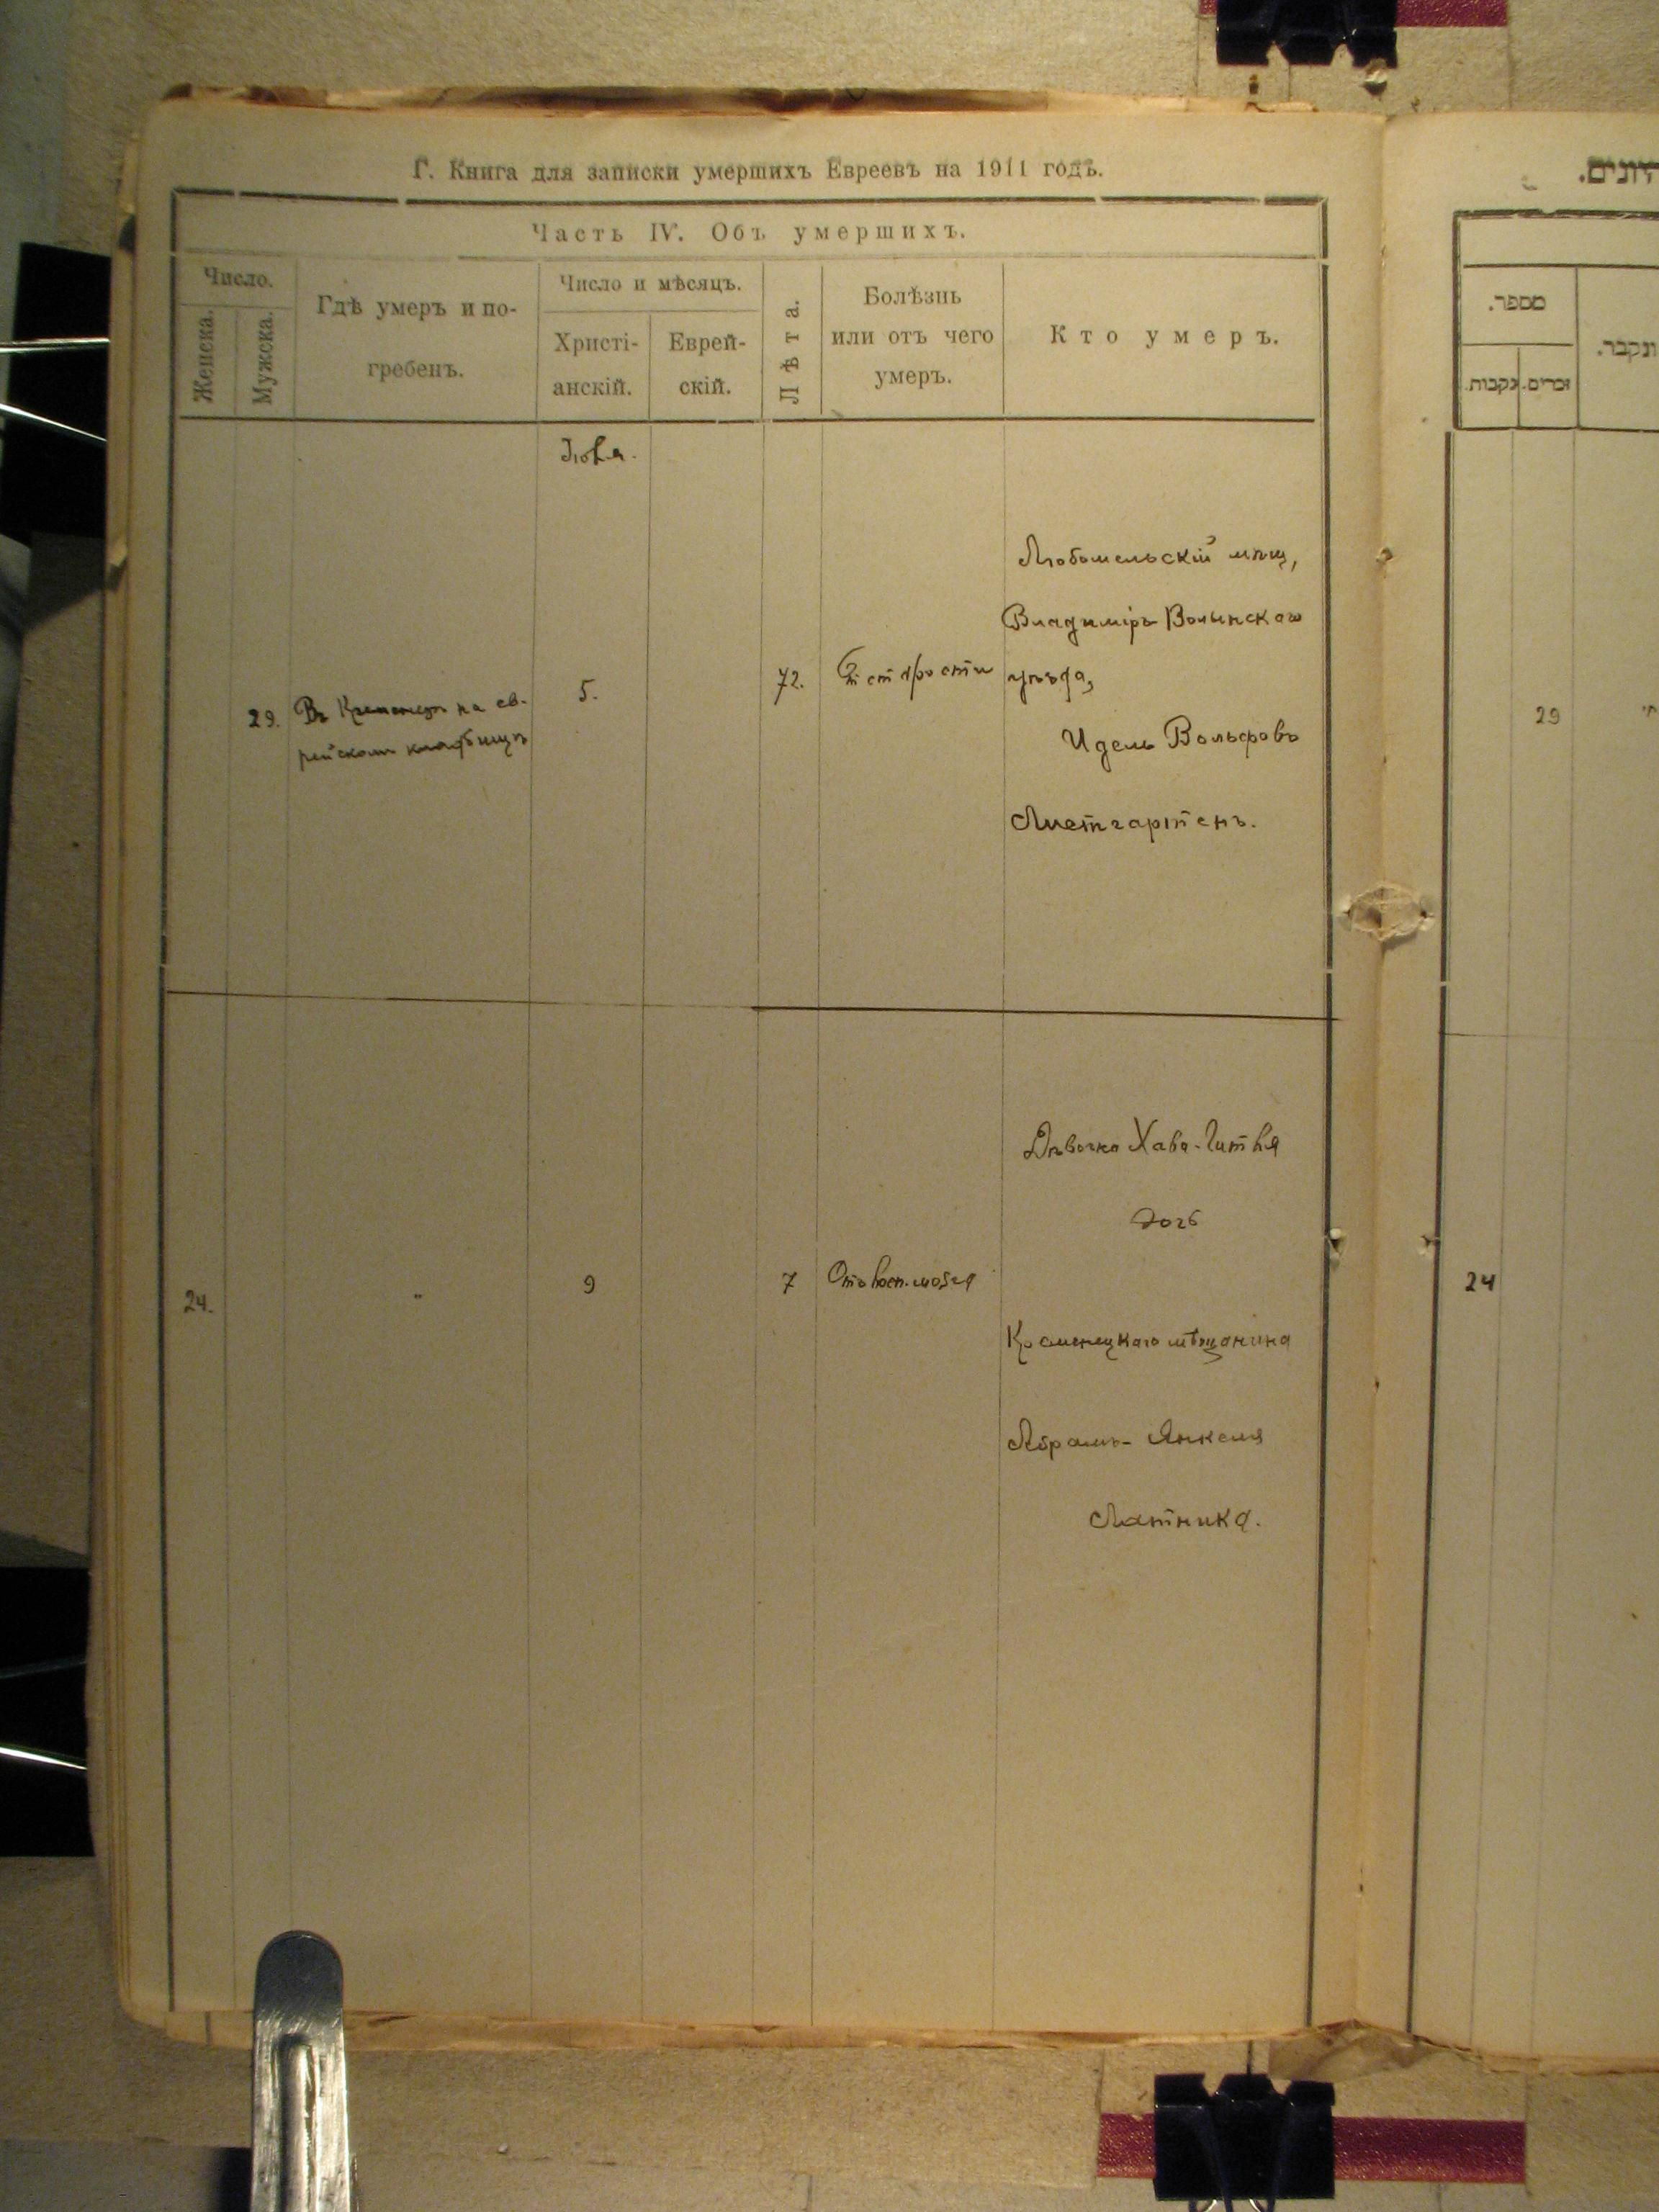 Г. Книга для записки умершихъ Евреевъ на 1911 годъ.
Часть IV. Объ умершихъ.
Число.
Женска.
Мужска.
Гдѣ умеръ и по-
гребенъ.
Число и мѣсяцъ.
Христі-
анскій.
Еврей-
скій.
Лѣта.
Болѣзнь
или отъ чего
умеръ.
Кто умеръ.
Іюля.
29.
Въ Кременцѣ на ев-
рейскомъ кладбищѣ
5.
72.
От старости
Любомельскій мѣщ,
Владиміръ-Волынскаго
уѣзда,
Идель Вольфовъ
Листгартенъ.
24.
"
9
7
Отъ восп. мозга
Дѣвочка Хава-Гитля
дочь
Кременецкаго мѣщанина
Абрамъ-Янкеля
Лятника.
מספר.
זכרים.
נקבות.
ונקבר.
29
24